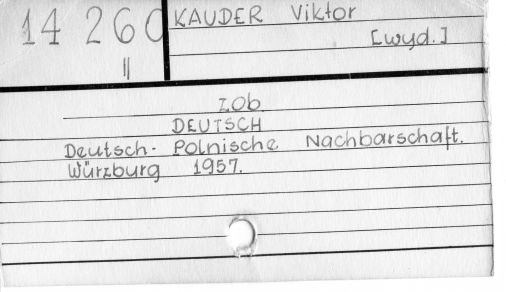 14 260
II
KAUDER Viktor
[wyd.]
zob
DEUTSCH
Deutsch- Polnische Nachbarschaft.
Würzburg 1957.